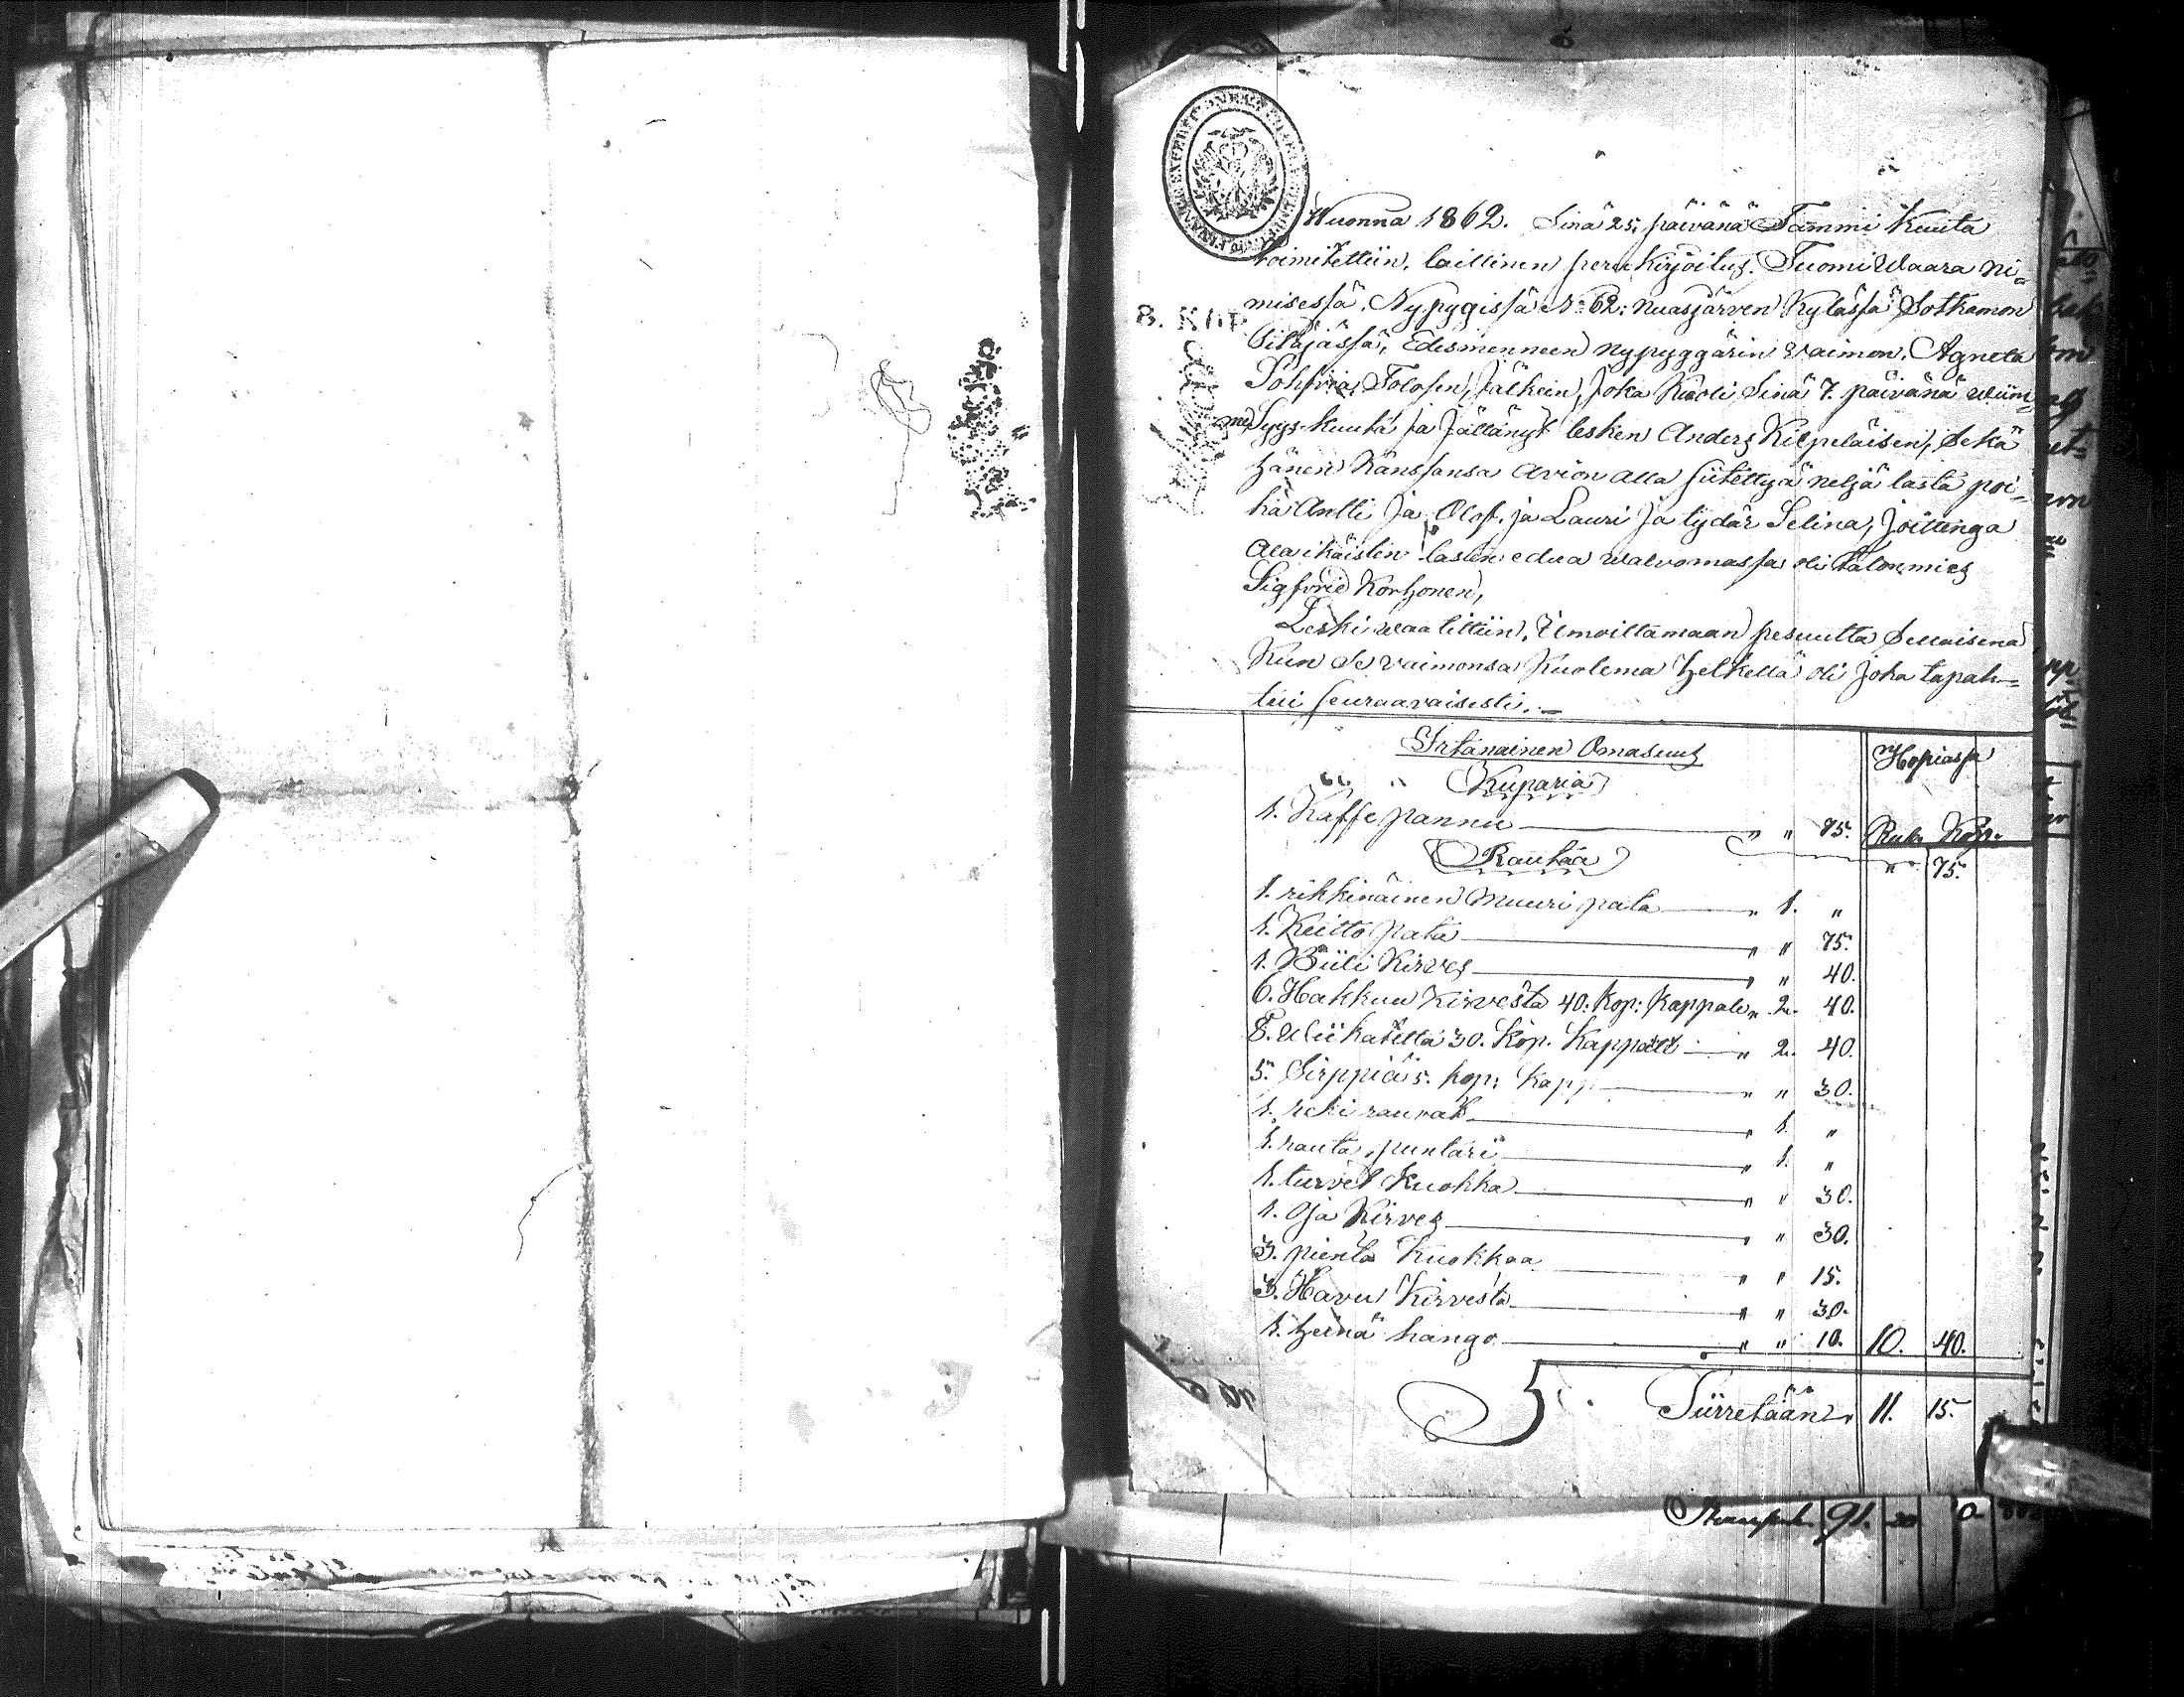 Wuonna 1862. Sinä 25; päivänä Tammi Kuuta
toimitettiin, laillinen perukirjoitus, TuomiWaara ni=
misessä, Nypygissä No 62: Nuasjärven Kylässä Sotkamon
8. KOP.
Pitäjässä, Edesmenneen nypyggärin Vaimon, Agneta
Sohfvia, Tolosen, Jälkeen, Joka Kuoli Sinä 7. päivänä wiim=
me Syys-kuuta ja Jättänyt lesken Anders Kilpeläisen, Sekä
hänen Kanssansa Avion alla siitettyä neljä lasta poi=
ka Antti Ja Olof. ja Lauri Ja tydär Selina, Joittenga
Ala ikäisten lasten edua walvomassa oli Talon mies
Sigfvrid Korhonen,
Leski waalittiin, Ilmoittamaan pesuutta Sellaisena
Kun Se vaimonsa Kuolema hetkellä oli Joka tapah=
tui seuraavaisesti. —
Irtanainen Omasuus
Hopiassa
Kuparia
1. Kaffe pannu " " 75. Rub. Kop.
Rautaa " 75.
1. rikkinäinen muuri pata " 1. "
1. Keitto pata " " 75.
1. Piili Kirves " " 40.
6. Hakkuu Kirvestä 40: Kop: Kappale " 2. 40.
8. Wiikatetta 30. Kop. Kappale " 2. 40.
5. Sirppiä 5. kop: Kapp " " 30.
1. reki rauvat " 1. "
1. rauta puntari " 1. "
1. turvet Kuokka " " 30.
1. Oja Kirves " " 30.
3. pientä Kuokkaa " " 15.
3. Havu Kirvestä " " 30.
1. heinä hango " " 10. 10. 40.
Siirretään 11. 15.
Transport 91.